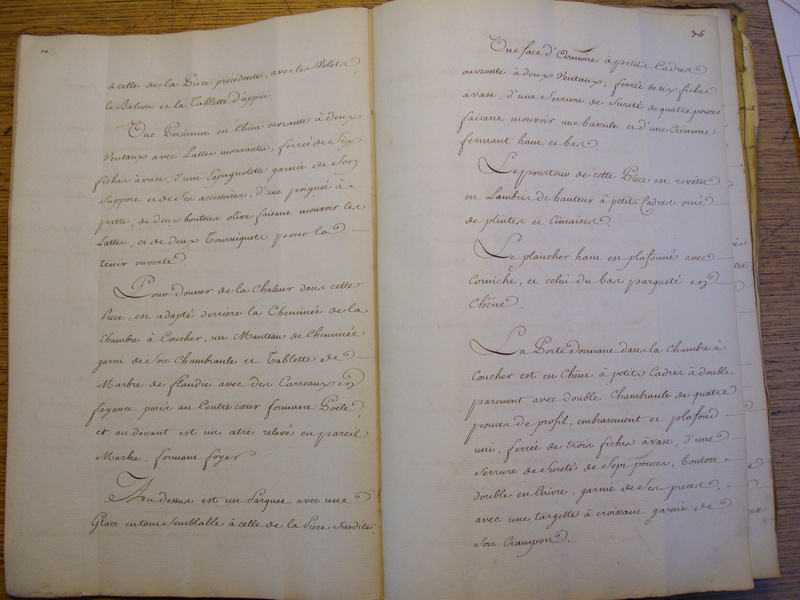 à celle de la Pièce précédente, avec les Volets
le Balcon et la Tablette d'appui.
Une Persienne en Chêne ouvrante à deux
Ventaux avec Lattes mouvantes, ferrée de Six
fiches à vase, d'une Espagnolette garnie de Son
Support et de Ses accessoires, d'une poignée à
patte, de deux boutons olive faisant mouvoir les
Lattes, et de deux Tourniquets pour la
tenir ouverte
Pour donner de la Chaleur dans cette
Pièce, est adapté derrière la Cheminée de la
Chambre à Coucher, un Manteau de Cheminée
garni de Son Chambranle et Tablette de
Marbre de flandre avec des Carreaux en
fayance posés au Contre cœur formant Poële
et au devant est un atre relevé en pareil
Marbre, formant foyer
Au dessus est un Parquet avec une
Glace en tout Semblable à celle de la Pièce Susdite
35
Une face d'Armoire à petits Cadres
ouvrante à deux Ventaux, ferrée de six fiches
à vase, d'une Serrure de Sureté de quatre pouces
faisant mouvoir une bascule et d'une Crémone
fermant haut et bas
Le pourtour de cette Pièce est revêtu
en Lambris de hauteur à petits Cadres orné
de plintes et Cimaises
Le plancher haut est plafonné avec
Corniche, et celui du bas parqueté en
Chêne
La Porte donnant dans la Chambre à
Coucher est en Chêne à petits Cadres à double
parement avec double Chambranle de quatre
pouces de profil, embrasement et plafond
uni, ferrée de trois fiches à vase, d'une
Serrure de Sureté de Sept pouces, bouton
double en Cuivre, garnie de Ses pieces,
avec une targette à croissant garnie de
Son Crampon